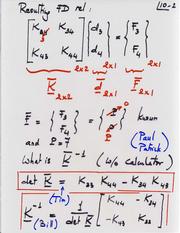 Resulting FD rel:
10-2
[K33 K34
K43 K44] {d3
d4} = {F3
F4}
K 2x2 d 2x1 F 2x1
F = {F3
F4} = {P
0} known
and P = ?
(Paul
Patrick)
What is K^-1 (w/o calculator)
det K = K33 K44 - K34 K43
(Tim)
K^-1 = 1/det K [K44 -K34
-K43 K33]
(Bill)